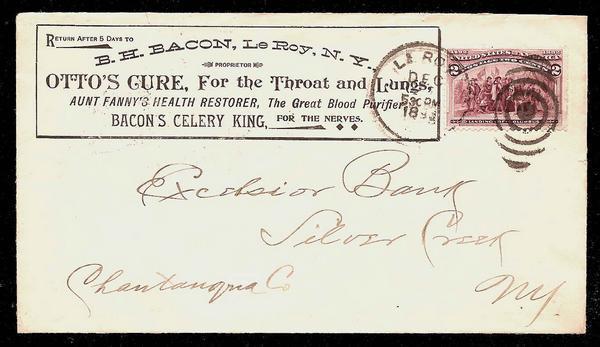 RETURN AFTER 5 DAYS TO
E. H. BACON, Le Roy, N. Y.,
PROPRIETOR
OTTO'S CURE, For the Throat and Lungs,
AUNT FANNY'S HEALTH RESTORER, The Great Blood Purifier,
BACON'S CELERY KING, FOR THE NERVES.
LE ROY
DEC
530PM
1893
UNITED STATES OF AMERICA
2 2
LANDING OF COLUMBUS
Excelsior Bank
Silver Creek
Chautauqua Co N.Y.